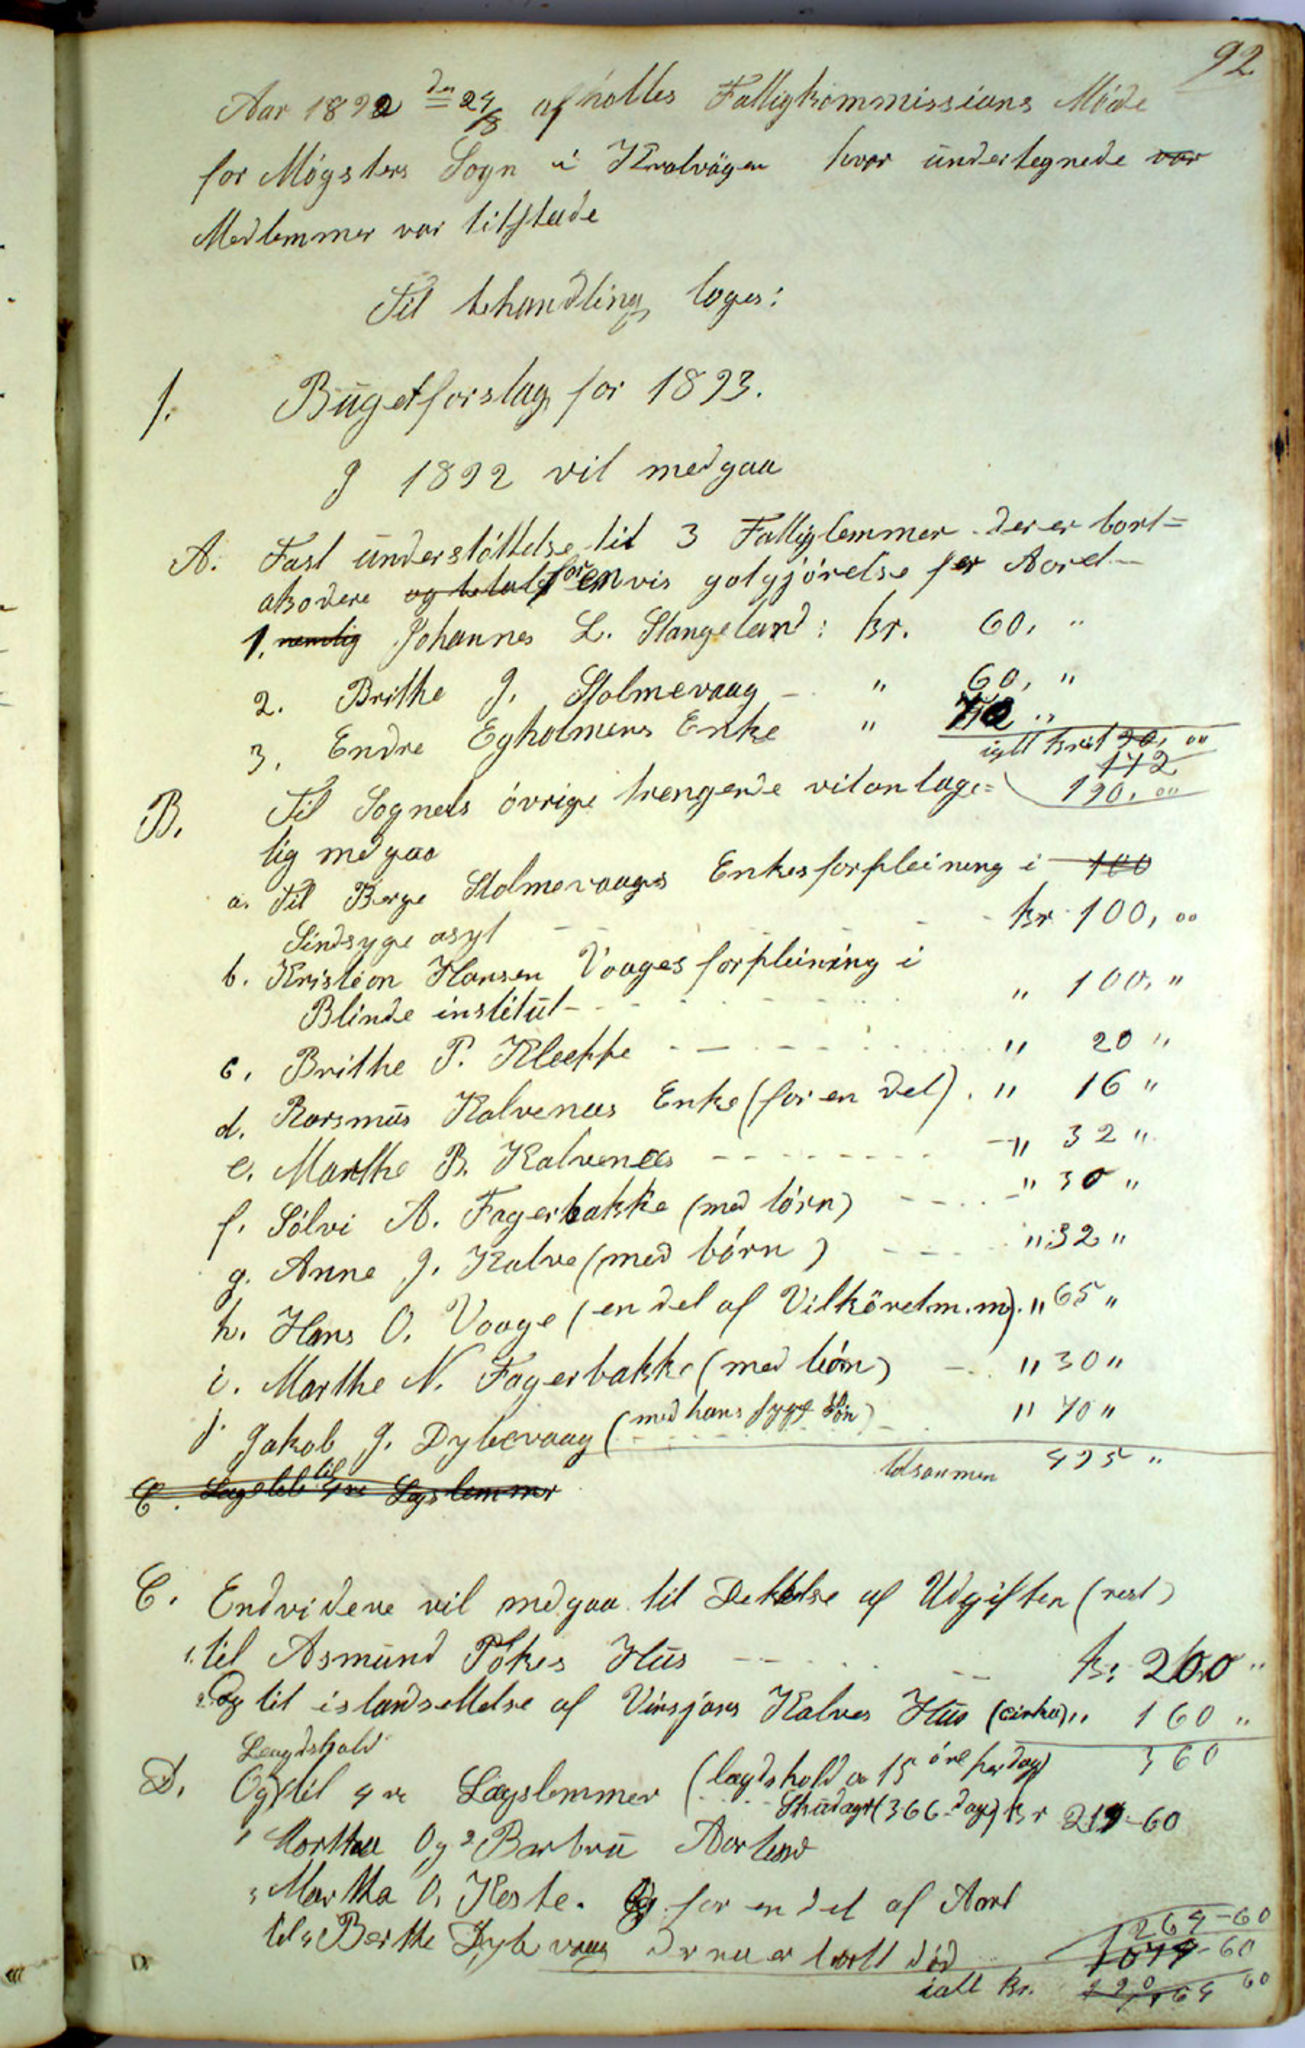 92
Aar 1892 den 24/8 afholtes Fattigkommissians Møde
for Møgsters Sogn i Kvalvågen hvor undertegnede var
Medlemmer var tilstæde
Til behandling toges:
1. Bugetforslag for 1893.
I 1892 vil medgaa
A. Fast understøttelse til 3 Fattiglemmer der er bort=
akodere og betalt for en vis gotgjørelse per Aaret
1. nemlig Johannes L. Stangeland: kr. 60, "
2. Brithe J. Stolmevaag - " 60, "
3. Endre Egholmens Enke "
ialt kr
172
190, 00
B. Til Sognets øvrige trengende vil antage=
lig medgaa
a. Til Berge Stolmevaages Enkes forpleining i 100
Sindsyge asyl - - - kr 100, 00
b. Kristian Hansen Vaages forpleining i
Blinde institut - - - " 100, "
c. Brithe P. Kleppe - - - " 20 "
d. Rasmus Kalvenes Enke (for en del). " 16 "
e. Marthe B. Kalvenes - - - " 32 "
f. Sølvi A. Fagerbakke (med børn) - - - " 30 "
g. Anne J. Kalve (med børn) - - - " 32 "
h. Hans O. Vaage (en del af Vilkåret m.m). " 65 "
i. Marthe N. Fagerbakke (med børn) - " 30 "
j. Jakob J. Dybevaag (med hans syge Søn) " 70 "
tilsammen 495 "
C. til Lægslemmer
C. Endvidere vil medgaa til Dekkelse af Udgifter (rest)
1. til Asmund Põkes Hus - - - kr 200 "
2. Og til istandsettelse af Vinsjans Kalves Hus (cirka) " 160 "
360
Leagdshold
D. Og til 4 re Lægslemmer (lægdshold a 15 øre per dag)
Skudaget (366 dage) kr 219-60
1 Martha Og 2 Barbru Aarland
3 Martha O. Koste. Og for en del af Aaret
til 4 Berthe Dybevaag der nu er bortt død
264-60
1079-60
ialt kr.